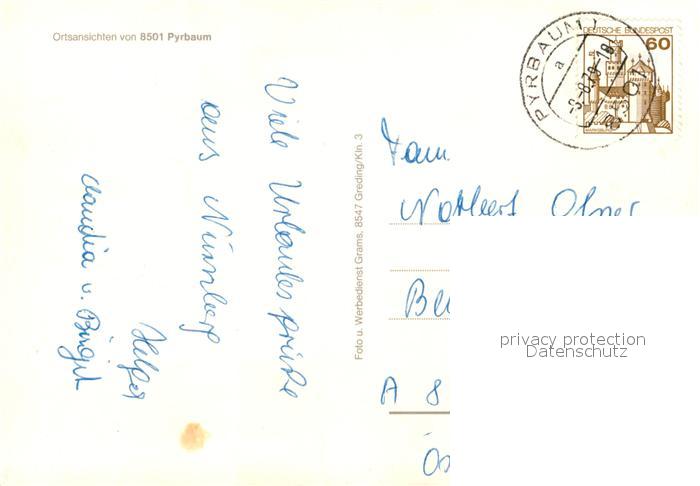 Ortsansichten von 8501 Pyrbaum
Viele Urlaubsgrüße
aus Nürnberg
Helga
Claudia u. Birgit
Foto u. Werbedienst Grams, 8547 Greding/Kln. 3
DEUTSCHE BUNDESPOST
60
PYRBAUM
a
8501
Fam.
Norbert
Be
A 8
Ös
privacy protection
Datenschutz